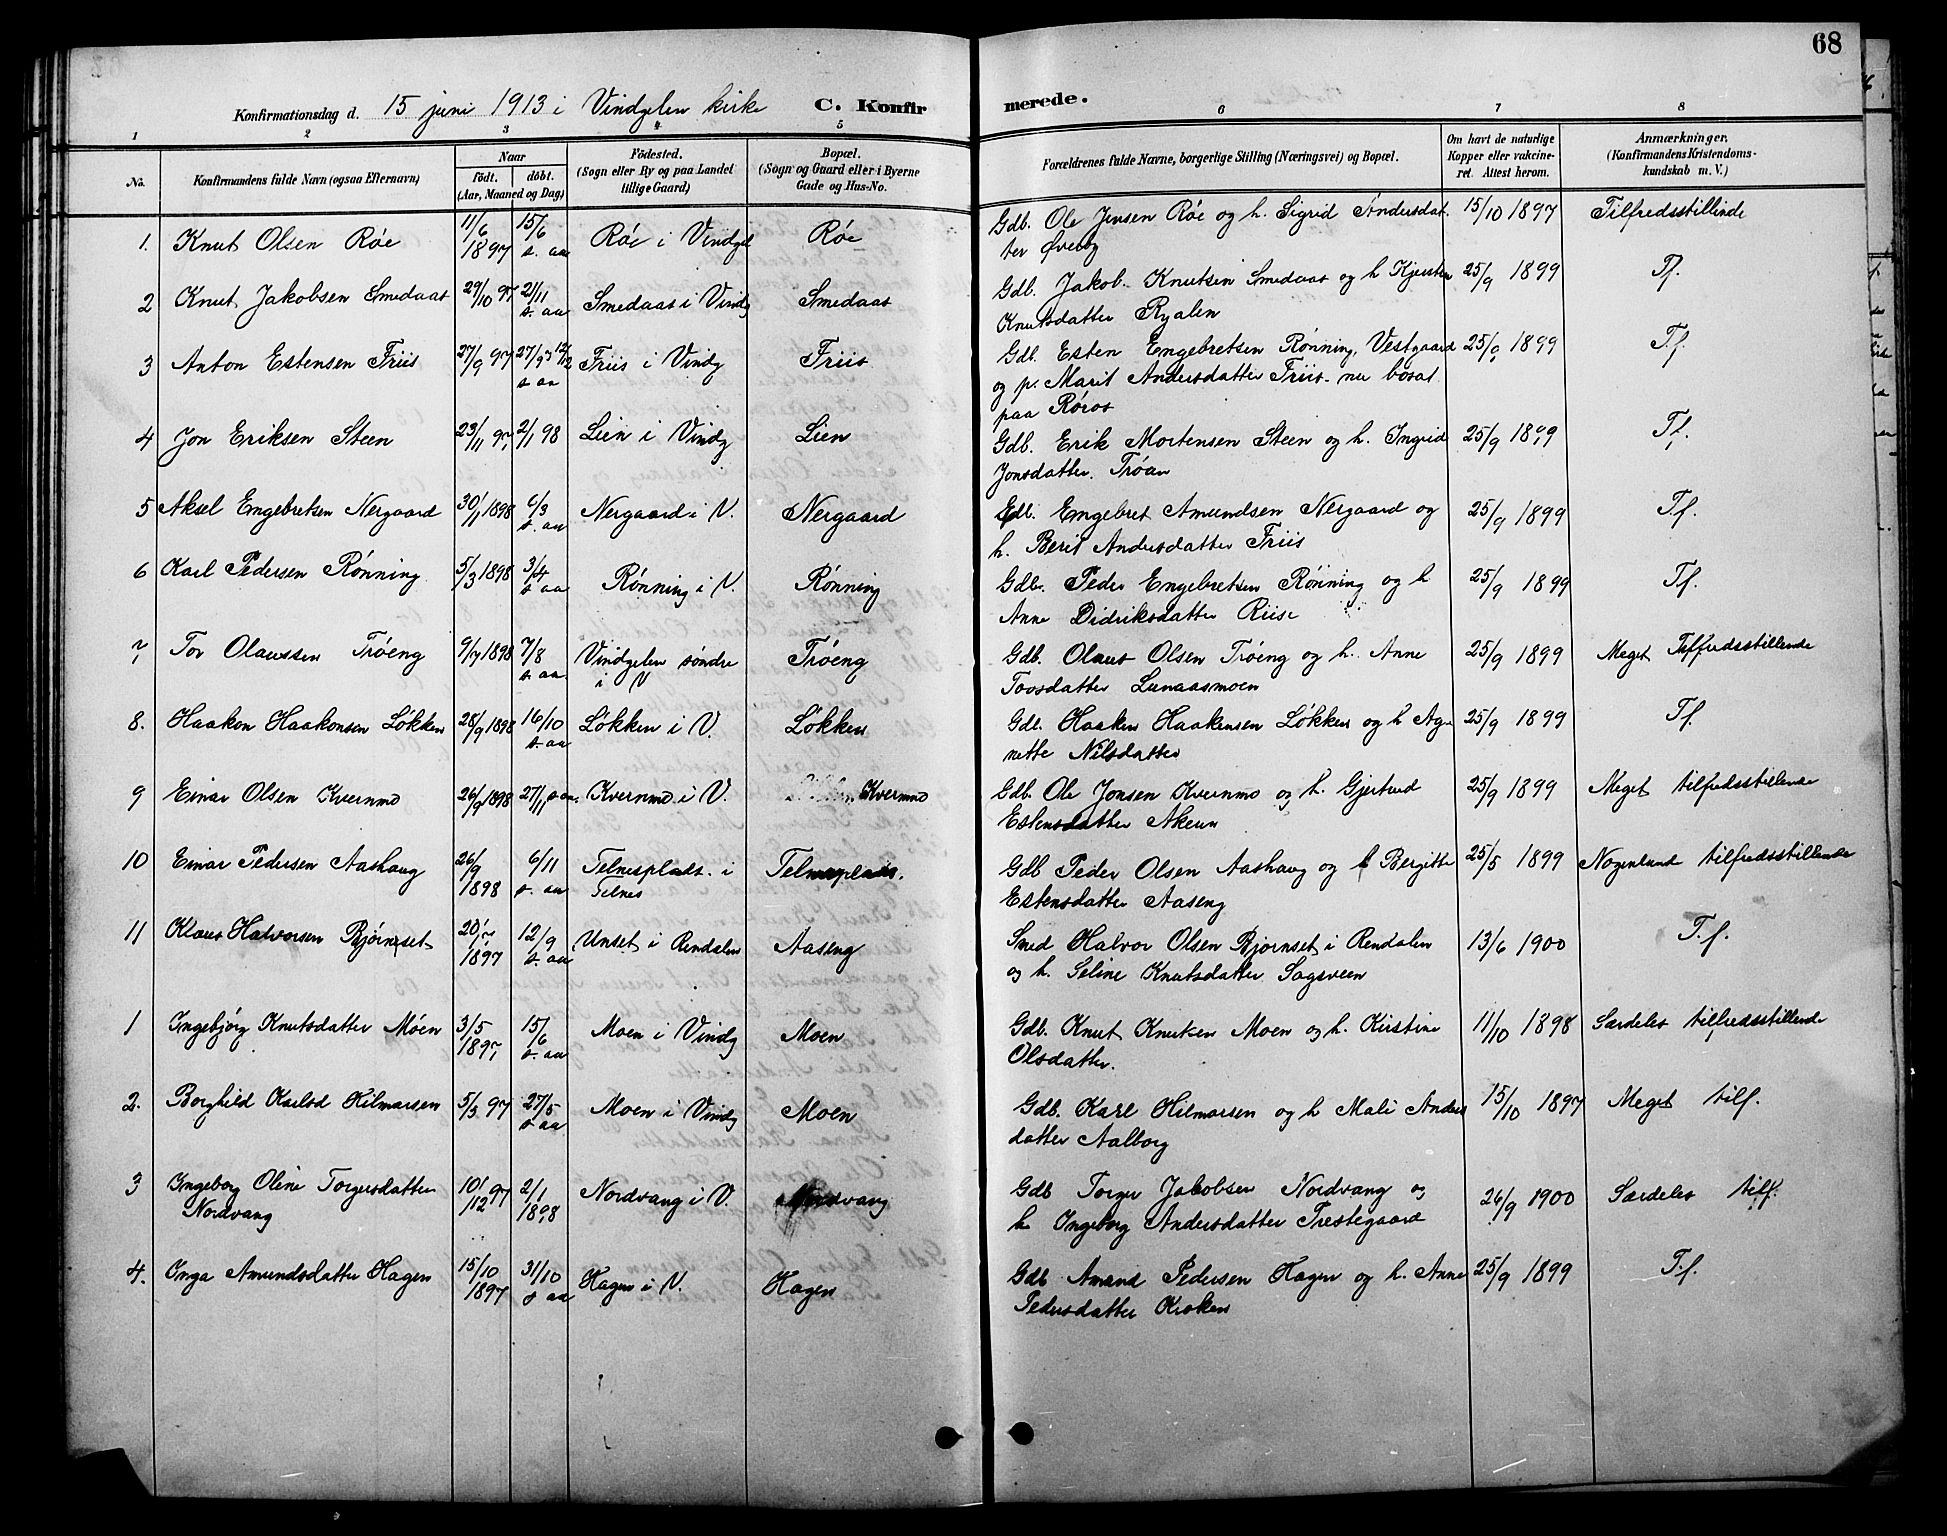 68
Konfirmationsdag d. 15 juni 1913 i Vindgelen kirke C. Konfirmerede.
1 2 3 4 5 6 7 8
No.
Konfirmandens fulde Navn (ogsaa Efternavn)
Naar
født. døbt.
(Aar, Maaned og Dag)
Fødested.
(Sogn eller By og paa Landet
tillige Gaard)
Bopæl.
(Sogn og Gaard eller i Byerne
Gade og Hus-No.
Forældrenes fulde Navne, borgerlige Stilling (Næringsvei) og Bopæl.
Om havt de naturlige
Kopper eller vakcine-
ret. Attest herom.
Anmærkninger.
(Konfirmandens Kristendoms-
kundskab m. V.)
1. Knut Olsen Røe 11/6 1897 15/6 s. aa Røe i Vindgel Røe Gdb. Ole Jensen Røe og h. Sigrid Andersdat 15/10 1897 Tilfredsstillende
ter Øveby
2 Knut Jakobsen Smedaas 29/10 97 21/11 s. aa Smedaas i Vindg Smedaas Gdb. Jakob Knutsen Smedaas og h Kjersten 25/9 1899 Tf.
Knutsdatter Ryalen
3 Anton Estensen Friis 27/9 97 27/9 97 12/12 s aa Friis i Vindg Friis Gdb. Esten Engebretsen Rønning, Vestgaard 25/9 1899 T.f.
og p. Marit Andersdatter Friis nu bosat
paa Røros
4 Jon Eriksen Steen 23/11 97 2/1 98 Lien i Vindg Lien Gdb. Erik Mortensen Steen og h. Ingrid 25/9 1899 Tf.
Jonsdatter Trøan
5 Aksel Engebretsen Nergaard 30/1 1898 6/3 s. aa Nergaard i V. Nergaard Gdb. Engebret Amundsen Nergaard og 25/9 1899 T.f.
h. Berit Andersdatter Friis
6 Karl Pedersen Rønning 5/3 1898 3/4 s aa Rønning i V. Rønning Gdb. Peder Engebretsen Rønning og h 25/9 1899 T.f.
Anne Didriksdatter Riise
7 Tor Olaussen Trøeng 9/7 1898 7/8 s. aa Vindgelen søndre i V Trøeng Gdb. Olaus Olsen Trøeng og h. Anne 25/9 1899 Meget Tilfredsstillende
Torsdatter Lunaasmoen
8. Haakon Haakonsen Løkken 28/9 1898 16/10 s. aa Løkken i V. Løkken Gdb. Haaken Haakensen Løkken og h Ag- 25/9 1899 Tf.
nette Nilsdatter
9 Einar Olsen Kvernmo 26/9 1898 27/11 s aa. Kvernmo i V. Kvernmo Gdb. Ole Jonsen Kvernmo og h. Gjertrud 25/9 1899 Meget tilfredsstillende
Estensdatter Akeun
10 Einar Pedersen Aashaug 26/9 1898 6/11 s. aa Telnesplads i Telnes Telnesplads. Gdb Peder Olsen Aashaug og h Bergitte 25/5 1899 Nogenlunde tilfredsstillende
Estensdatter Aaseng
11 Klaus Halvorsen Bjørnset 20/7 1897 12/9 s. aa Unset i Rendalen Aaseng Smed Halvor Olsen Bjørnset i Rendalen 13/6 1900 T.f.
og h. Seline Knutsdatter Sagsveen
1 Ingebjørg Knutsdatter Móen 3/5 1897 15/6 s. aa Moen i Vindg Moen Gdb. Knut Knutsen Moen og h. Kirstine 11/10 1898 Særdeles tilfredsstillende
Olsdatter.
2. Borghild Karlsd Hilmarsen 5/3 97 27/5 s aa Moen i Vindg Moen Gdb. Karl Hilmarsen og h Mali Anders 15/10 1897 Meget tilf.
datter Aalborg
3 Ingeborg Oline Torgersdatter Nordvang 10/12 97 2/1 1898 Nordvang i V. Nordvang Gdb Torger Jakobsen Nordvang og 26/9 1900 Særdeles tilf.
h Ingeborg Andersdatter Trestegaard
4. Inga Amundsdatter Hagen 15/10 1897 31/10 s aa Hagen i V. Hagen Gdb Amund Pedersen Hagen og h. Anne 25/9 1899 T.f.
Pedersdatter Kroken